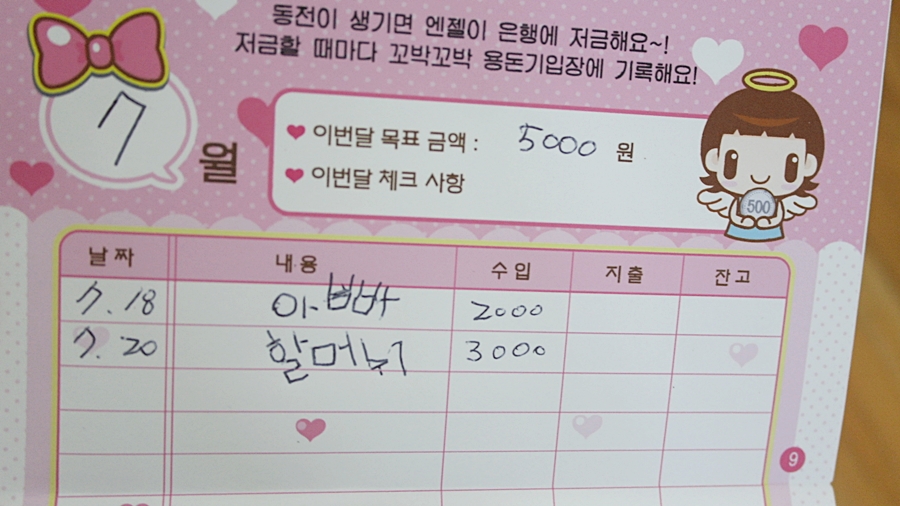 동전이 생기면 엔젤이 은행에 저금해요~!
저금할 때마다 꼬박꼬박 용돈기입장에 기록해요!
7월
이번달 목표 금액 : 5000 원
이번달 체크 사항
500
날짜 내용 수입 지출 잔고
7. 18 아빠 2000
7. 20 할머니 3000
9